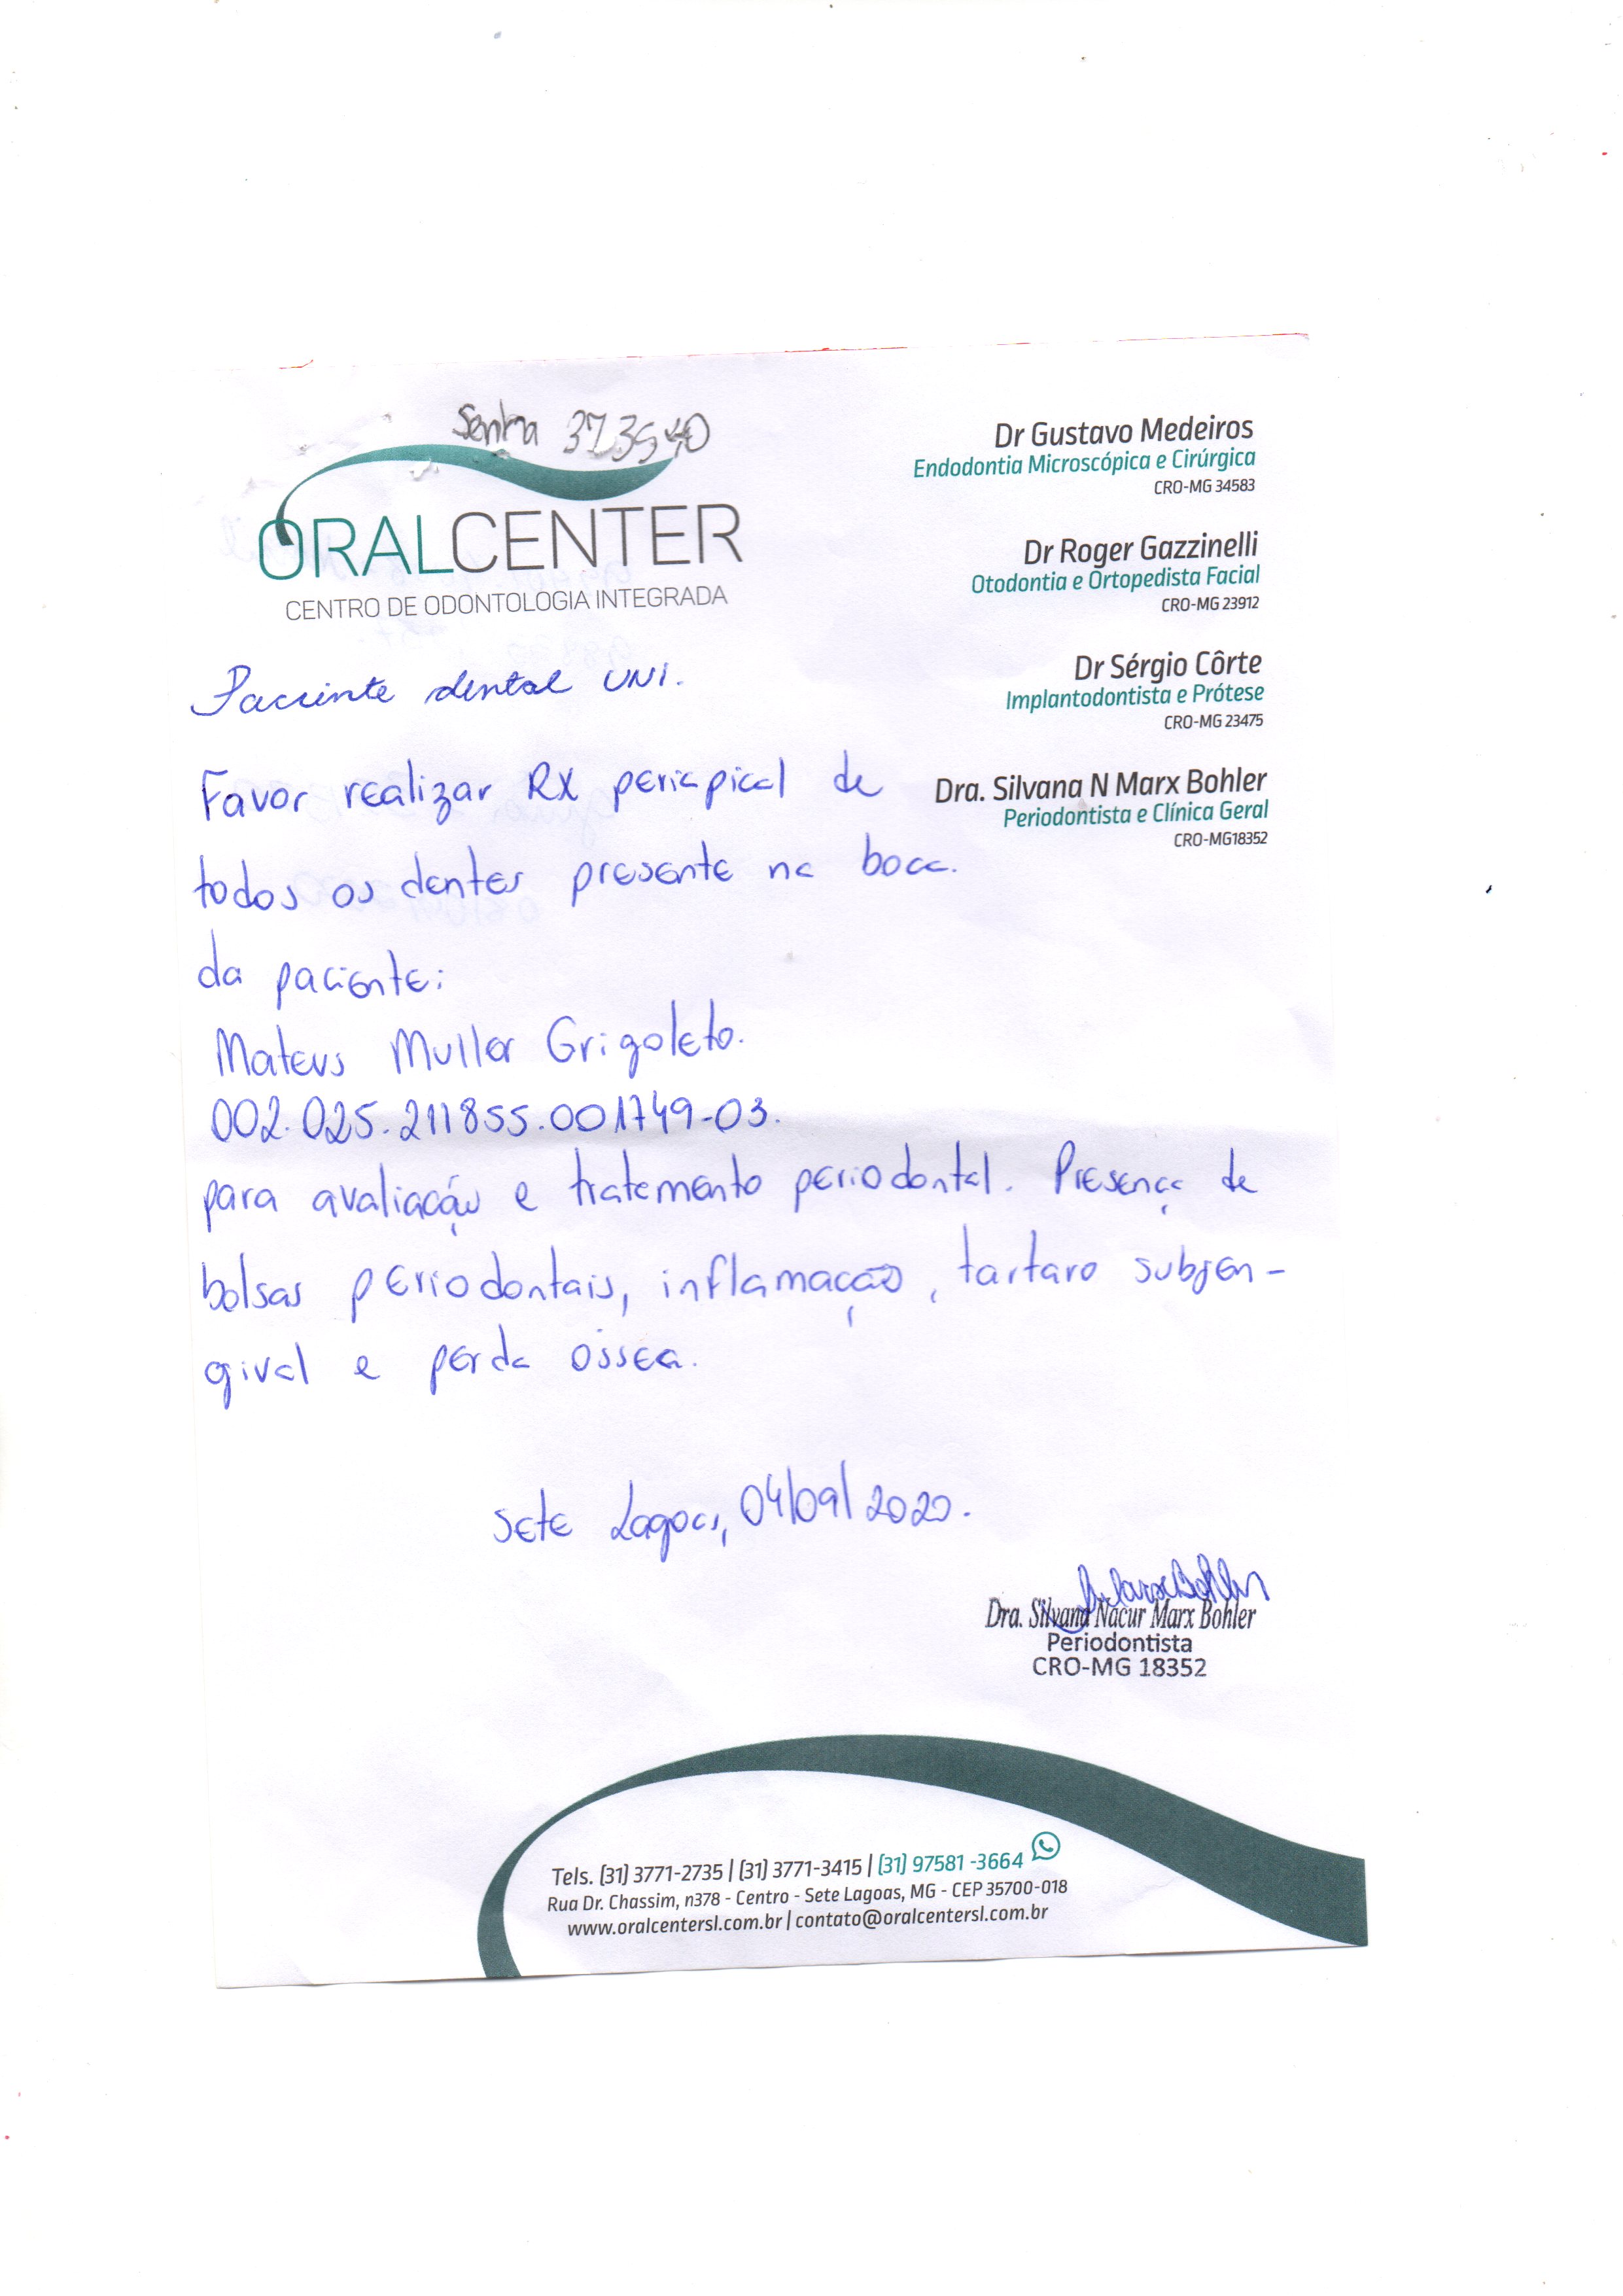 Senha 373540
ORALCENTER
CENTRO DE ODONTOLOGIA INTEGRADA
Dr Gustavo Medeiros
Endodontia Microscópica e Cirúrgica
CRO-MG 34583
Dr Roger Gazzinelli
Otodontia e Ortopedista Facial
CRO-MG 23912
Dr Sérgio Côrte
Implantodontista e Prótese
CRO-MG 23475
Dra. Silvana N Marx Bohler
Periodontista e Clínica Geral
CRO-MG18352
Paciente dental UNI.
Favor realizar RX periapical de
todos os dentes presente na boca.
da paciente:
Mateus Muller Grigoleto.
002.025.211855.001749-03.
para avaliação e tratamento periodontal. Presença de
bolsas periodontais, inflamação, tartaro subgen-
gival e perda óssea.
Sete Lagoas, 04/09/2020.
Dra. Silvana Nacur Marx Bohler
Periodontista
CRO-MG 18352
Tels. (31) 3771-2735 | (31) 3771-3415 | (31) 97581 -3664
Rua Dr. Chassim, n378 - Centro - Sete Lagoas, MG - CEP 35700-018
www.oralcentersl.com.br | contato@oralcentersl.com.br